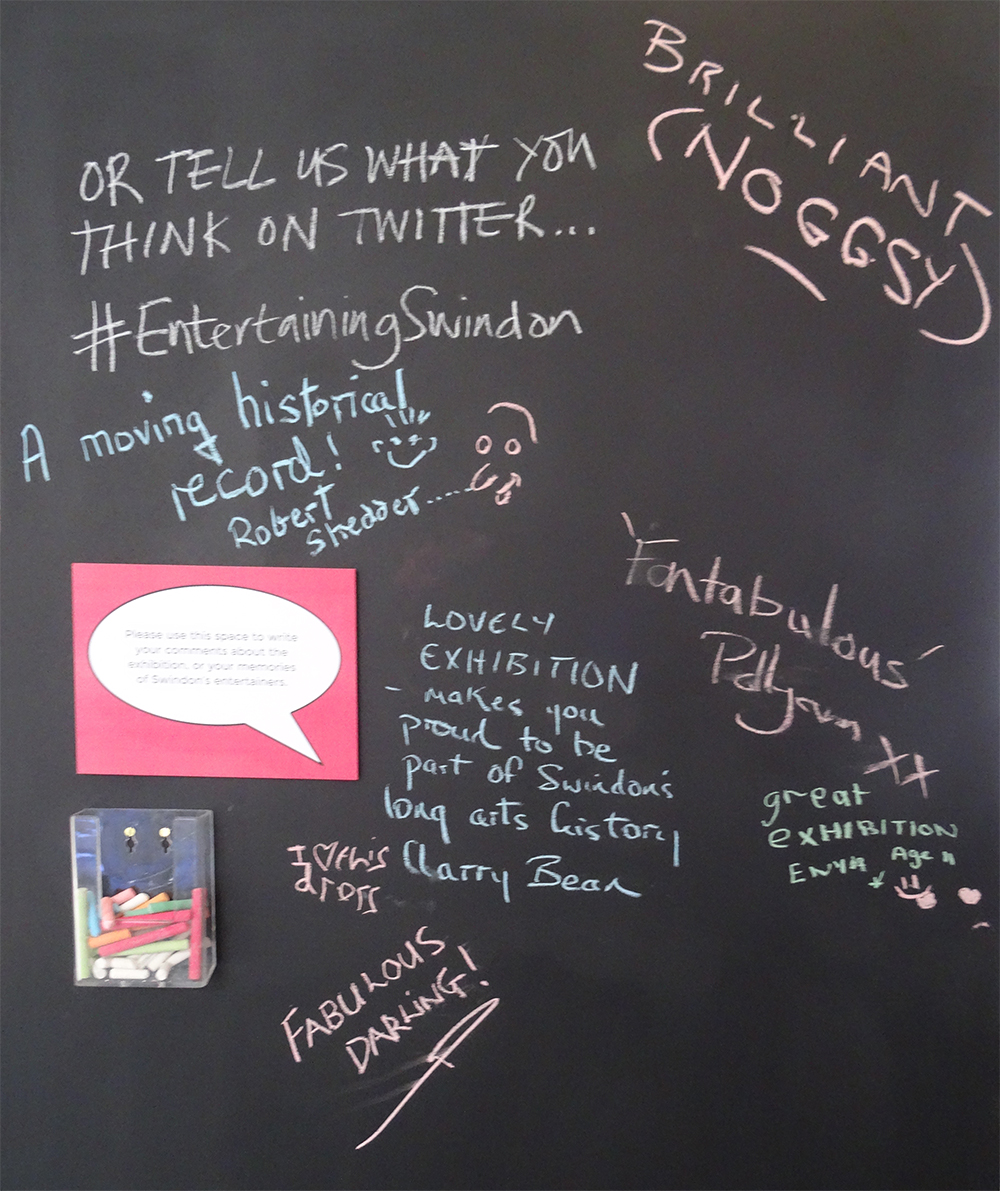 BRILLIANT
(NOGGSY)
OR TELL US WHAT YOU
THINK ON TWITTER...
#EntertainingSwindon
A moving historical
record!
Robert
Shedder......
Please use this space to write
your comments about the
exhibition, or your memories
of Swindon's entertainers.
'Fantabulous'
XX
LOVELY
EXHIBITION
- makes you
proud to be
part of Swindon's
long arts history
Clarry Bean
great
EXHIBITION
ENYA Age 11
I ♥ this
dress
FABULOUS
DARLING!